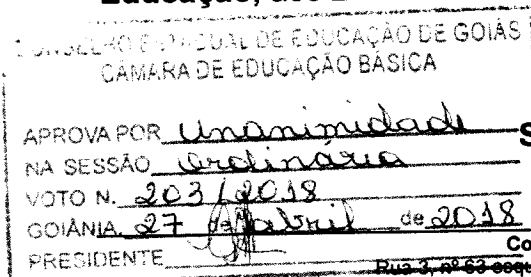 Educação,
CONSELHO ESTADUAL DE EDUCAÇÃO DE GOIÁS
CÂMARA DE EDUCAÇÃO BÁSICA
APROVA POR Unanimidade
NA SESSÃO Ordinária
VOTO N. 203/2018
GOIÂNIA, 27 de abril de 2018
PRESIDENTE
Rua 3, nº 63